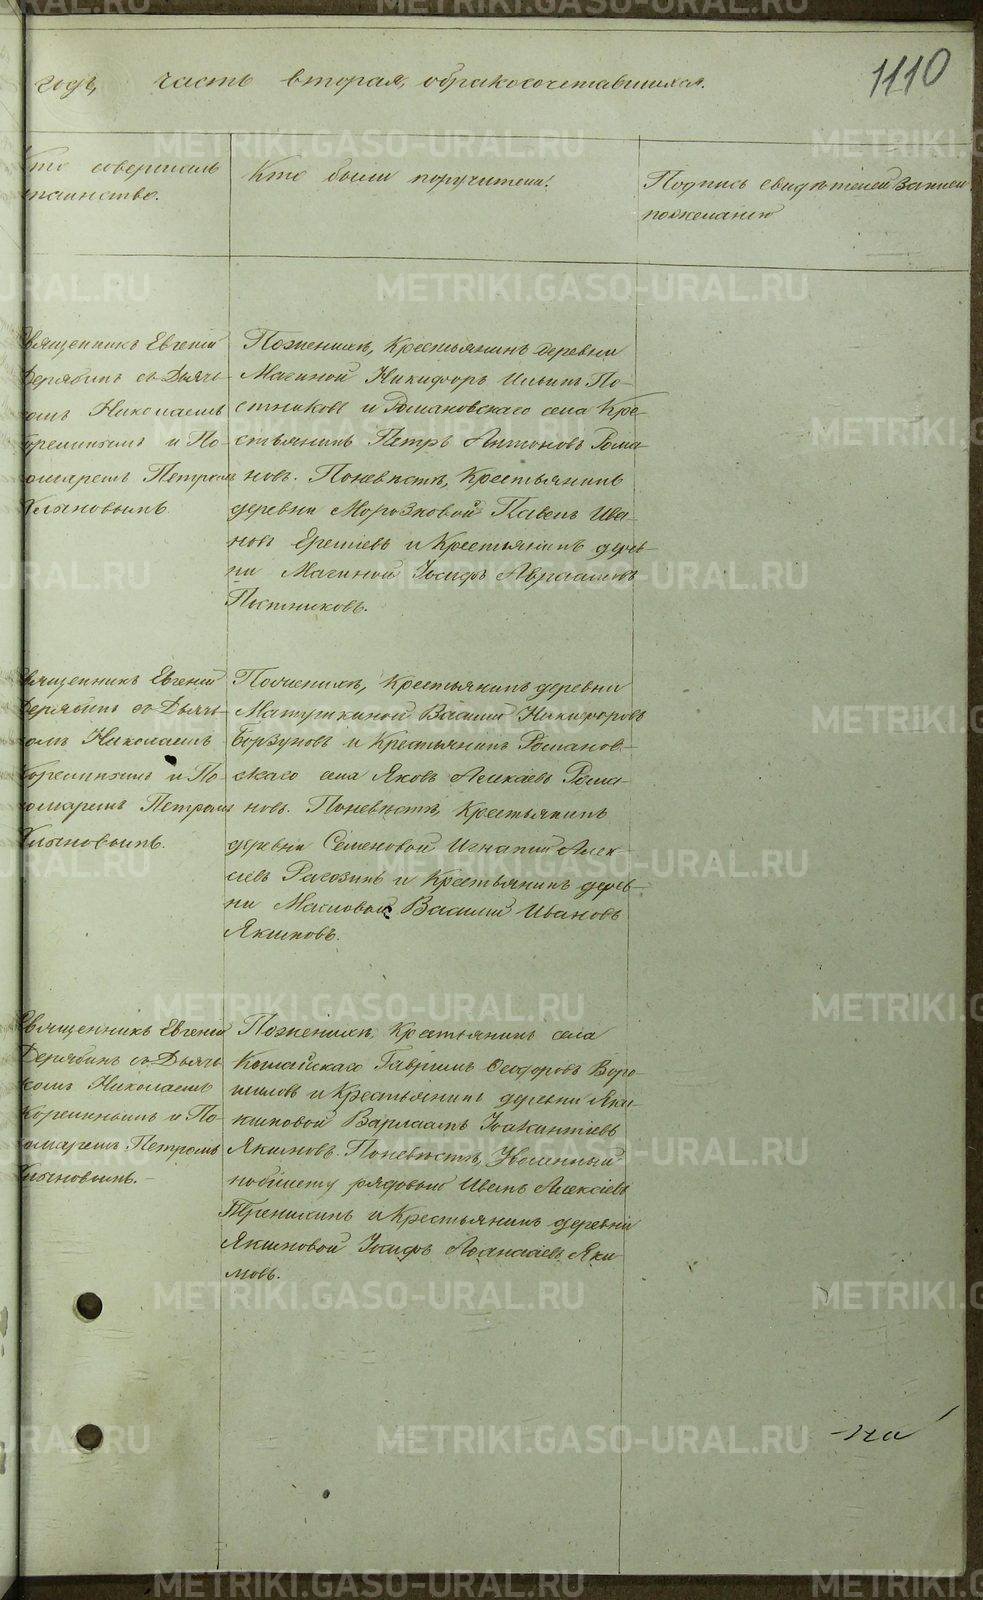 1110
годъ, часть вторая, обракосочетавшихся.
Кто совершалъ
таинство.
Кто были поручители.
Подпись свидѣтелей Записи
пожеланію
Священникъ Евгеній
Дерябинъ съ Дьяч-
комъ Николаемъ
и По-
номаремъ Петромъ
Поженихѣ, Крестьянинъ деревни
Мачиной Никифоръ Ильинъ По-
стниковъ и Романовскаго села Кре-
стьянинъ Петръ Антоновъ Рома-
новъ. Поневѣстѣ, Крестьянинъ
деревни Морозковой Павелъ Ива-
новъ и Крестьянинъ дерев-
ни Мачиной Іосифъ Авраамовъ
Постниковъ.
Священникъ Евгеній
Дерябинъ съ Дьяч-
комъ Николаемъ
и По-
номаремъ Петромъ
Поженихѣ, Крестьянинъ деревни
Матушкиной Василій Никифоровъ
Борзуновъ и Крестьянинъ Романов-
скаго села Яковъ Алексѣевъ Рома-
новъ. Поневѣстѣ, Крестьянинъ
деревни Семеновой Игнатій Алек-
сѣевъ Рагозинъ и Крестьянинъ дерев-
ни Масловой Василій Ивановъ
Якимовъ.
Священникъ Евгеній
Дерябинъ съ Дьяч-
комъ Николаемъ
и По-
номаремъ Петромъ
Поженихѣ, Крестьянинъ села
Кошайскаго Гавріилъ Ѳеодоровъ Воро-
шиловъ и Крестьянинъ деревни Яки-
мовой Варлаамъ
Якимовъ. Поневѣстѣ, Уволенный
побилету рядовой Иванъ Алексѣевъ
и Крестьянинъ деревни
Якимовой Іосифъ Аѳанасіевъ Яки-
мовъ.
METRIKI.GASO-URAL.RU